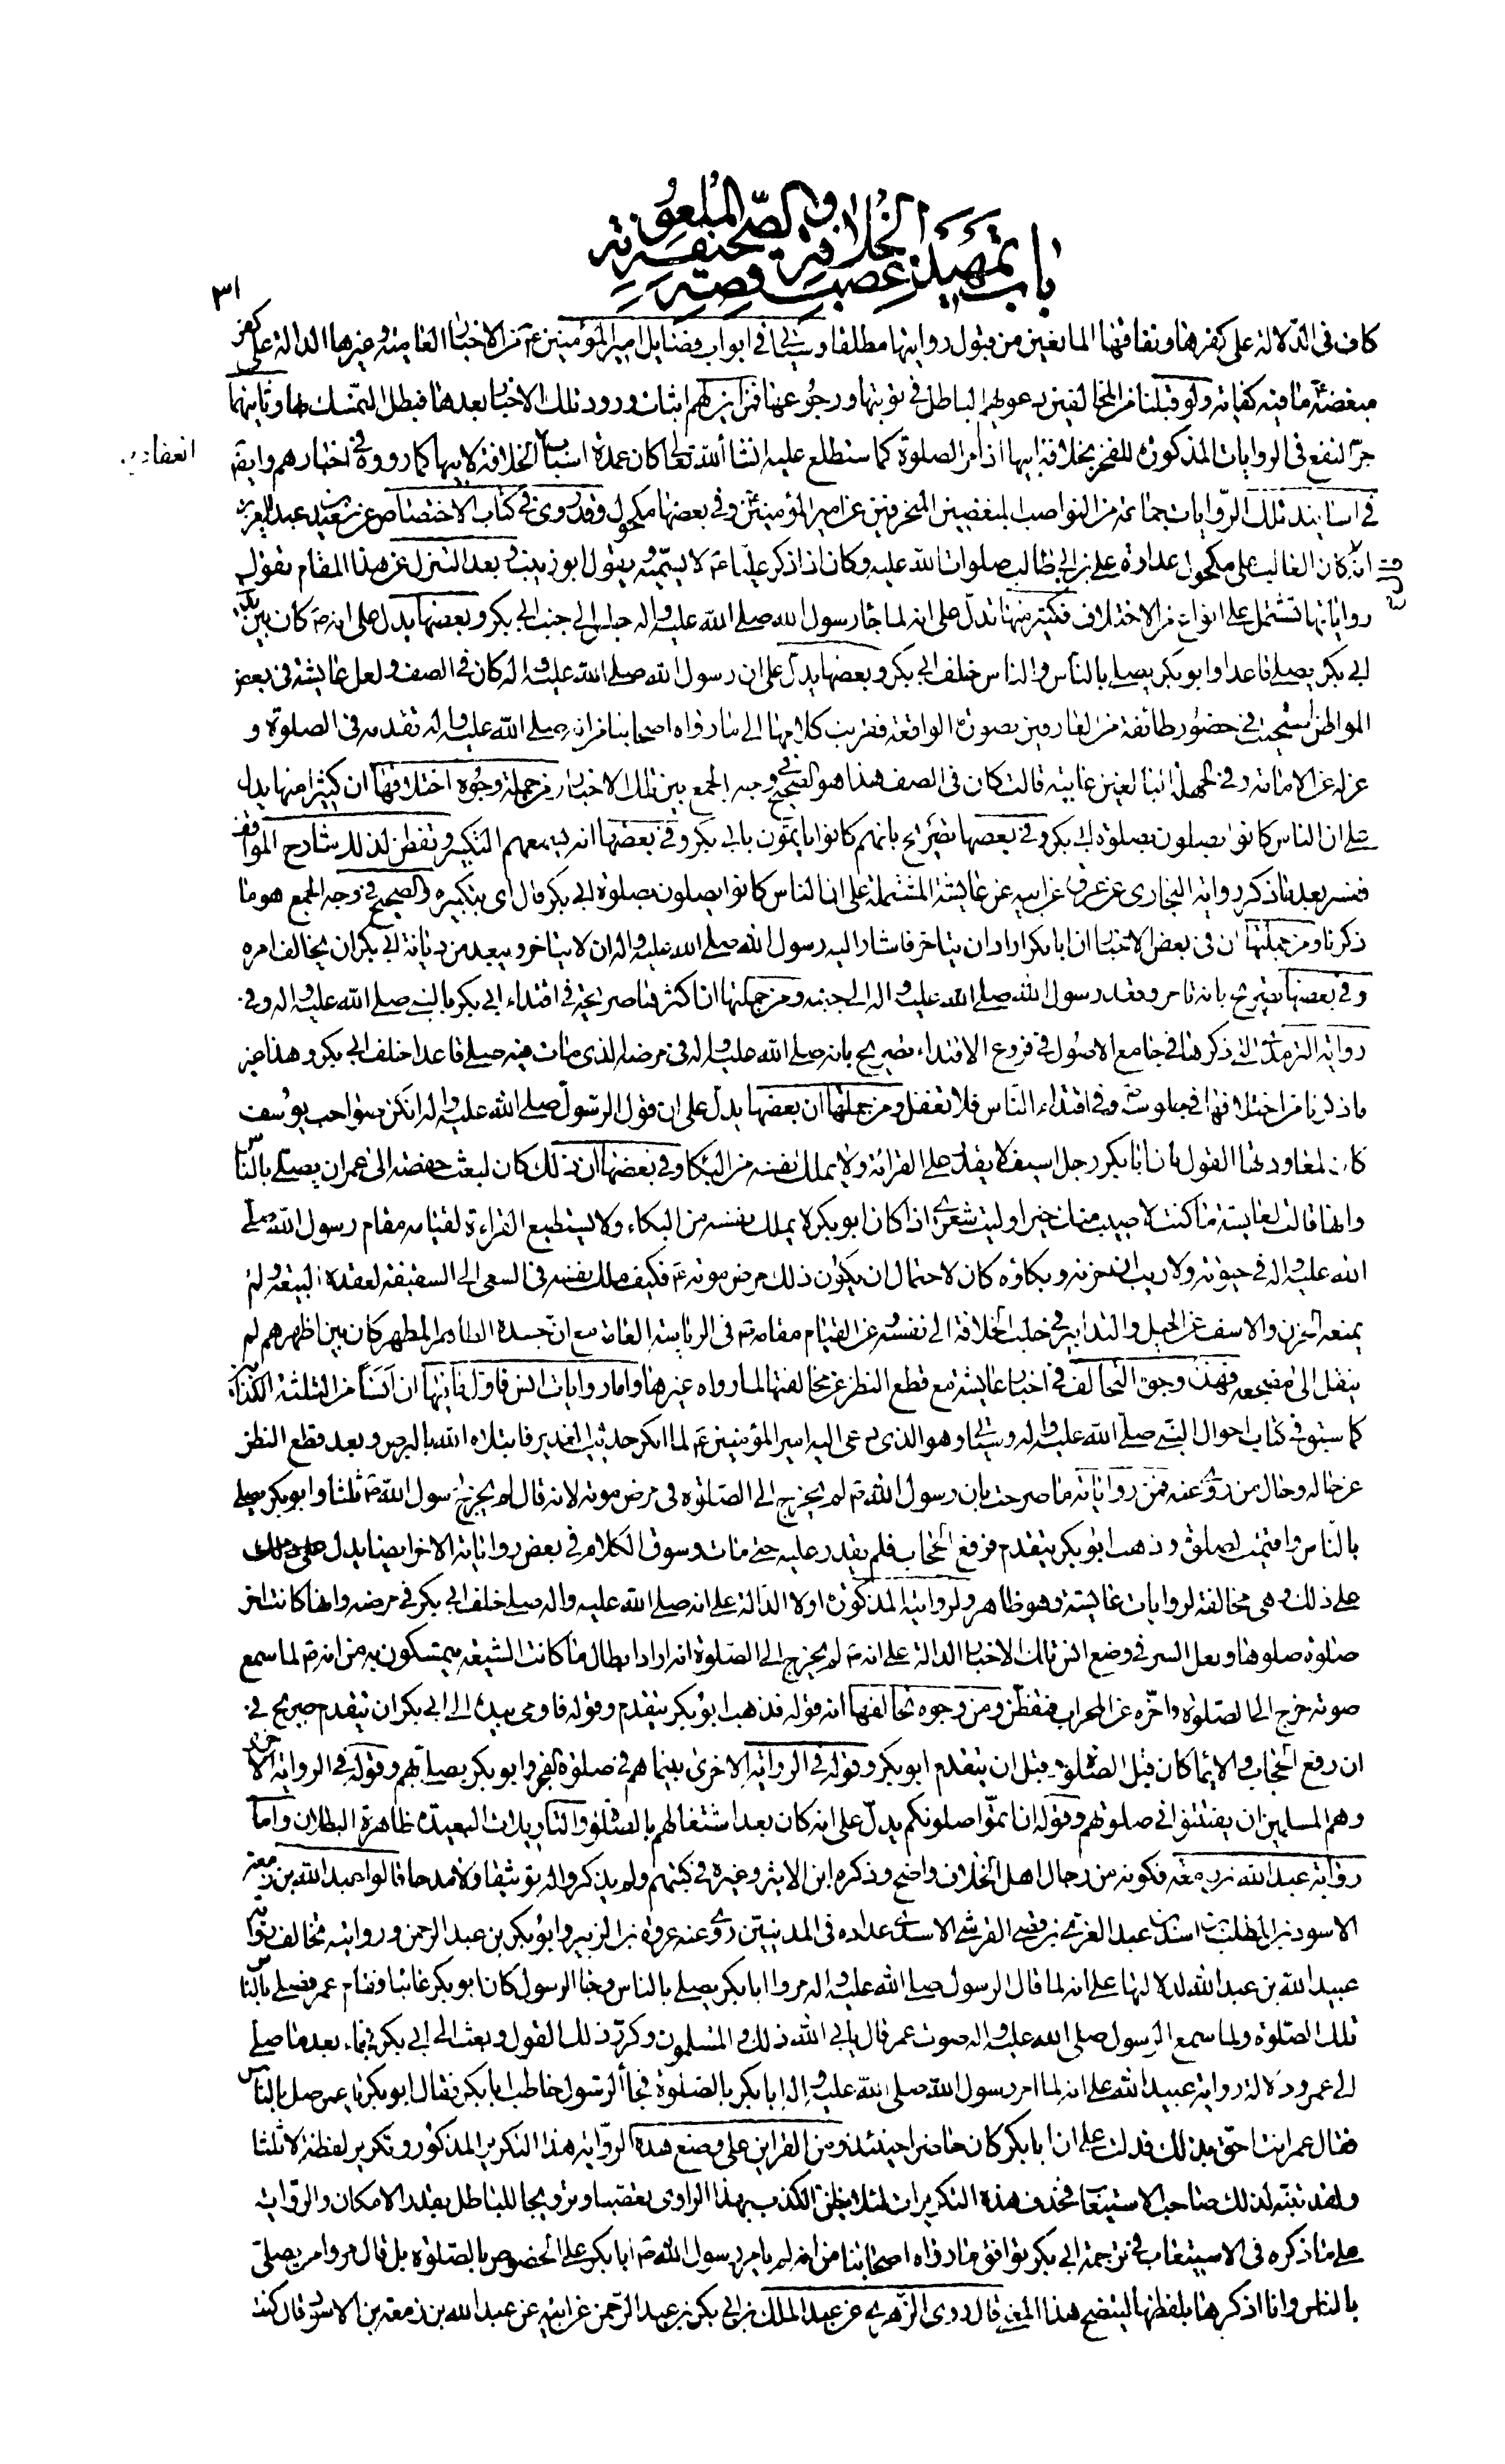 باب تمهيد غصب الخلافة وقصة الصحيفة الملعونة
٣١
كاف في الدلالة على كفرها ونفاقها المانعين من قبول روايتها مطلقا وسيأتي في ابواب فضايل امير المؤمنين ع من الاخبار العامية وغيرها الدالة على كفر
مبغضه ما فيه كفاية ولو قبلنا من المخالفين دعويهم الباطل في توبتها ورجوعها فمن اين لهم اثبات ورود تلك الاخبار بعدها فبطل التمسك بها وثانيهما
جر النفع في الروايات المذكورة للفخر بخلافة ابيها اذ امر الصلوة كما ستطلع عليه انشاء الله تعالى كان عمدة اسباب انعقاد الخلافة لابيها كما رووه في اخبارهم وايضا
في اسانيد تلك الروايات جماعة من النواصب المبغضين المنحرفين عن امير المؤمنين ع وفي بعضها مكحول وقد روى في كتاب الاختصاص عن سعيد بن عبد العزيز
قال كان الغالب على مكحول عداوة علي بن ابي طالب صلوات الله عليه وكان اذا ذكر عليا ع لا يسميه ويقول ابو زينب وبعد التنزل عن هذا المقام نقول
رواياتها تشتمل على انواع من الاختلاف فكثير منها تدل على انه لما جاء رسول الله صلى الله عليه واله جلس الى جنب ابي بكر وبعضها يدل على انه ص كان بين يدي
ابي بكر يصلي قاعدا وابو بكر يصلي بالناس والناس خلف ابي بكر وبعضها يدل على ان رسول الله صلى الله عليه واله كان في الصف ولعل عايشة في بعض
المواطن استحيت في حضور طائفة من العارفين بصورة الواقعة فقربت كلامها الى ما رواه اصحابنا من انه صلى الله عليه واله تقدم في الصلوة و
عزله عن الامامة وفي الجهلة التابعين غايته قالت كان في الصف هذا هو الصحيح في وجه الجمع بين تلك الاخبار ومن جملة وجوه اختلافها ان كثيرا منها يدل
على ان الناس كانوا يصلون بصلوة ابي بكر وفي بعضها تصريح بانهم كانوا ياتمون بابي بكر وفي بعضها انه يسمعهم التكبير وتفطن لذلك شارح المواقف
ففسر بعد ما ذكر رواية البخاري عن عروة عن ابيه عن عايشة المشتملة على ان الناس كانوا يصلون بصلوة ابي بكر قال اي بتكبيره والصحيح في وجه الجمع هو ما
ذكرنا ومن جملتها ان في بعض الاخبار ان ابا بكر اراد ان يتاخر فاشار اليه رسول الله صلى الله عليه واله ان لا يتاخر ويبعد من ديانة ابي بكر ان يخالف امره
وفي بعضها تصريح بانه تاخر وقعد رسول الله صلى الله عليه واله الى جنبه ومن جملتها ان اكثرها صريحة في اقتداء ابي بكر بالنبي صلى الله عليه واله وفي
رواية الترمذي التي ذكرها في جامع الاصول في فروع الاقتداء تصريح بانه صلى الله عليه واله في مرضه الذي مات فيه صلى قاعدا خلف ابي بكر وهذا غير
ما ذكرنا من اختلافها في جلوسه ص وفي اقتداء الناس فلا تغفل ومن جملتها ان بعضها يدل على ان قول الرسول صلى الله عليه واله انكن صواحب يوسف
كان لمعاودتها القول بان ابا بكر رجل اسيف لا يقدر على القراءة ولا يملك نفسه من البكاء وفي بعضها ان ذلك كان لبعث حفصة الى عمر ان يصلي بالناس
وانها قالت لعايشة ما كنت لاصيب منك خيرا وليت شعري اذا كان ابو بكر لا يملك نفسه من البكاء ولا يستطيع القراءة لقيامه مقام رسول الله صلى
الله عليه واله في حيوته ولا ريب ان حزنه وبكاؤه كان لاحتمال ان يكون ذلك مرض موته ع فكيف ملك نفسه في السعي الى السقيفة لعقدة البيعة ولم
يمنعه الحزن والاسف عن الحيل والتدابير في جلب الخلافة الى نفسه عن القيام مقامه ص في الرياسة العامة مع ان جسده الطاهر المطهر كان بين اظهرهم لم
ينقل الى مضجعه فهذه وجوه التخالف في اخبار عايشة مع قطع النظر عن مخالفتها لما رواه غيرها واما روايات انس فاول ما فيها ان انسا من الثلثة الكذابين
كما سبق في كتاب احوال النبي صلى الله عليه واله وسياتي وهو الذي دعى اليه امير المؤمنين ع لما انكر حديث الغدير فابتلاه الله بالبرص وبعد قطع النظر
عن حاله وحال من روى عنه فمن رواياته ما صرحت بان رسول الله ص لم يخرج الى الصلوة في مرض موته لانه قال لم يخرج رسول الله ص ثلثا وابو بكر يصلي
بالناس واقيمت الصلوة وذهب ابو بكر يتقدم فرفع الحجاب فلم يقدر عليه حتى مات وسوق الكلام في بعض رواياته الاخر ايضا يدل
على ذلك وهي مخالفة لروايات عايشة وهو ظاهر ولروايته المذكورة اولا الدالة على انه صلى الله عليه واله صلى خلف ابي بكر في مرضه وانها كانت اخر
صلوة صلوها ولعل السر في وضع انس تلك الاخبار الدالة على انه ص لم يخرج الى الصلوة انه اراد ابطال ما كانت الشيعة يتمسكون به من انه ص لما سمع
صوته خرج الى الصلوة واخره عن المحراب فتفطن ومن وجوه تخالفها انه قوله فذهب ابو بكر يتقدم وقوله فاومى بيده الى ابي بكر ان يتقدم صريح في
ان رفع الحجاب والايما كان قبل الصلوة وقبل ان يتقدم ابو بكر وقوله في الرواية الاخرى بينما هم في صلوة الفجر وابو بكر يصلي بهم وقوله في الرواية الاخرى
وهم المسلمين ان يفتتنوا في صلوتهم وقوله ان اتموا صلوتكم يدل على انه كان بعد اشتغالهم بالصلوة والتاويلات البعيدة ظاهرة البطلان واما
رواية عبد الله بن زمعة فكونه من رجال اهل الخلاف واضح وذكره ابن الاثير وغيره في كتبهم ولم يذكروا له توثيقا ولا مدحا قالوا عبد الله بن زمعة
الاسود بن المطلب بن اسد بن عبد العزى بن قصي القرشي الاسدي عداده في المدنيين روى عنه عروة بن الزبير وابو بكر بن عبد الرحمن وروايته تخالف رواية
عبيد الله بن عبد الله لدلالتها على انه لما قال الرسول صلى الله عليه واله مروا ابا بكر يصلي بالناس وجاء الرسول كان ابو بكر غائبا وقام عمر فصلى بالناس
تلك الصلوة ولما سمع الرسول صلى الله عليه واله صوت عمر قال يابى الله ذلك والمسلمون وكرر ذلك القول وبعث الى ابي بكر فجاء بعد ما صلى
الى عمر ودلالة رواية عبيد الله على انه لما امر رسول الله صلى الله عليه واله ابا بكر بالصلوة فجاء الرسول خاطب ابا بكر فقال ابو بكر يا عمر صل بالناس
فقال عمر انت احق بذلك فدلت على ان ابا بكر كان حاضرا حينئذ ومن القراين على وضع هذه الرواية هذا التكرير المذكور وتكرير لفظة لا ثلثا
ولقد تنبه لذلك صاحب الاستيعاب فحذف هذه التكريرات لئلا يظن الكذب بهذا الراوي تعصبا وترويجا للباطل بقدر الامكان والرواية
على ما ذكره في الاستيعاب في ترجمة ابي بكر توافق ما رواه اصحابنا من انه لم يامر رسول الله ص ابا بكر على الخصوص بالصلوة بل قال مروا من يصلي
بالناس وانا اذكرها بلفظها ليتضح هذا المعنى قال روى الزهري عن عبد الملك بن ابي بكر بن عبد الرحمن عن ابيه عن عبد الله بن زمعة بن الاسود قال كنت